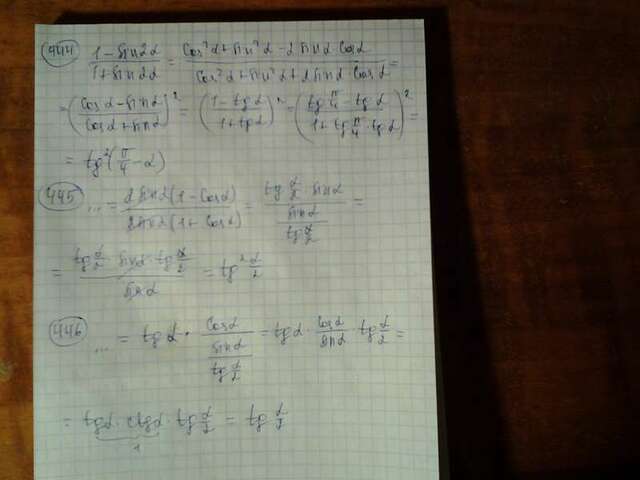 444 (1-sin2α)/(1+sin2α) = (cos²α+sin²α-2sinα cosα)/(cos²α+sin²α+2sinα cosα) =
= ((cosα-sinα)/(cosα+sinα))² = ((1-tgα)/(1+tgα))² = ((tg π/4 - tgα)/(1+tg π/4 · tgα))² =
= tg²(π/4 - α)
445 ... = (2sinα(1-cosα))/(2sinα(1+cosα)) = (tg α/2 · sinα)/(sinα/(tg α/2)) =
= (tg α/2 · sinα · tg α/2)/sinα = tg² α/2
446 ... = tgα · cosα/(sinα/(tg α/2)) = tgα · cosα/sinα · tg α/2 =
= tgα · ctgα · tg α/2 = tg α/2
1